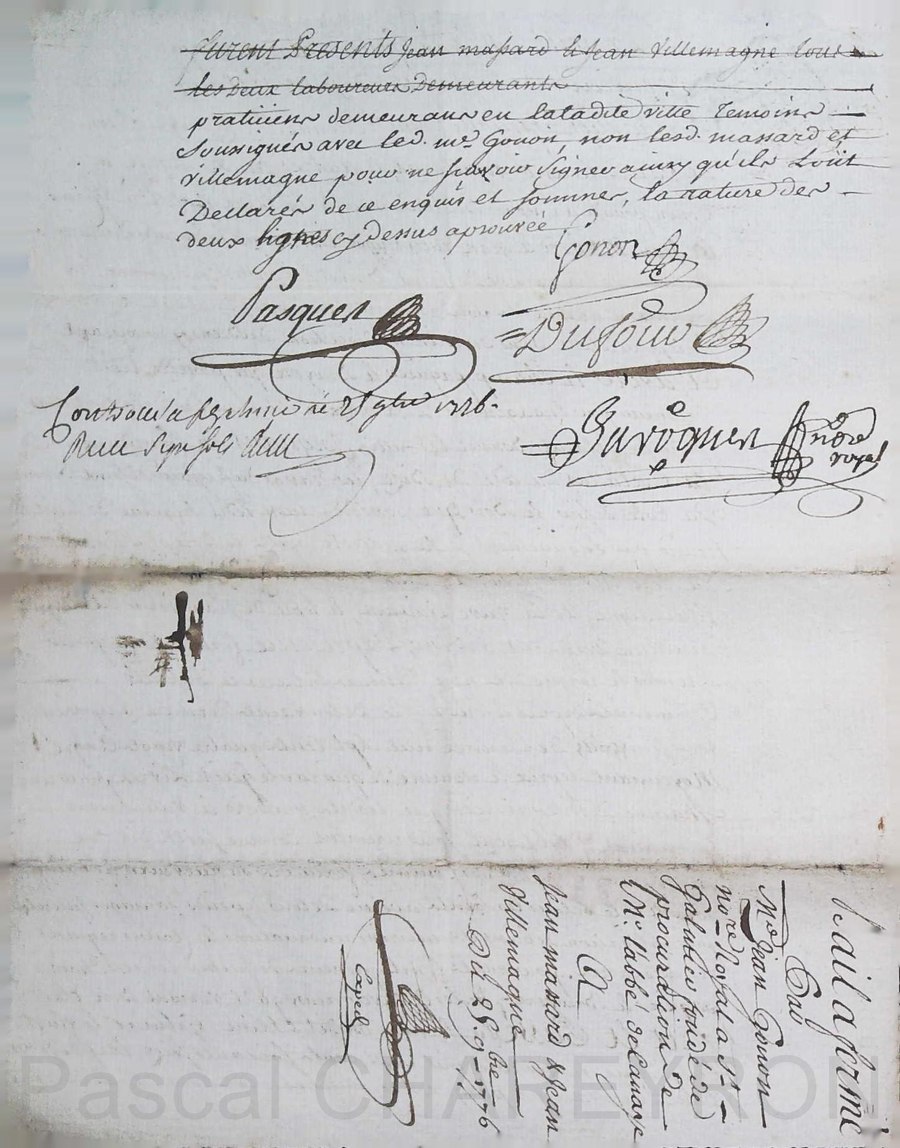 furent Presents Jean massard & Jean Villemagne tous
les deux laboureurs Demeurants
praticiens demeurans en laladite ville Temoins
soussignés avec led. me. Gonon, non lesd. massard et
villemagne pour ne savoir signer a
Declarés de ce enquis et sommes, la rature des
deux lignes cy dessus aprouvée
Gonon
Pasquer
Dufour
Controulé a le 25 9bre 1776.
Reçu
notre
royal
bail a ferme
Par
Me Jean Gonon
nore. Royal a St.
Galmier fondé de
procuration de
Mr. l'abbé
A
Jean massard & Jean
Villemagne
Du 25 9bre 1776
Exped
Pascal CHAREYRON